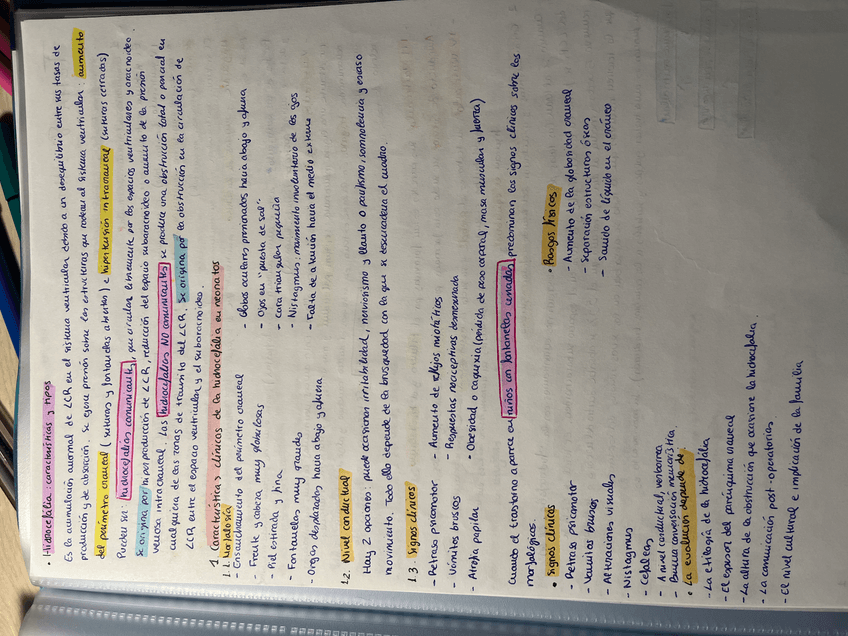 • Hidrocefalia: características y tipos
Es la acumulación anormal de LCR en el sistema ventricular debido a un desequilibrio entre sus tasas de
producción y de absorción. Se ejerce presión sobre las estructuras que rodean al sistema ventricular: aumento
del perímetro craneal (suturas y fontanelas abiertas) e hipertensión intracraneal (suturas cerradas)
Pueden ser: hidrocefalias comunicantes, que circulan libremente por los espacios ventriculares y aracnoideo.
Se origina por hiperproducción de LCR, reducción del espacio subaracnoideo o aumento de la presión
venosa intracraneal. Las hidrocefalias NO comunicantes se produce una obstrucción total o parcial en
cualquiera de las zonas de tránsito del LCR. Se origina por la obstrucción en la circulación de
LCR entre el espacio ventricular y el subaracnoideo.
1. Características clínicas de la hidrocefalia en neonatos
1.1. Morfología
- Ensanchamiento del perímetro craneal
- Frente y cabeza muy globulosas
- Piel estirada y fina
- Fontanelas muy grandes
- Órganos desplazados hacia abajo y afuera
- Globos oculares presionados hacia abajo y afuera
- Ojos en "puesta de sol"
- Cara triangular pequeña
- Nistagmus: movimiento involuntario de los ojos
- Falta de atención hacia el medio externo
1.2. Nivel conductual
Hay 2 opciones: puede ocasionar irritabilidad, nerviosismo y llanto o pasitismo, somnolencia y escaso
movimiento. Todo ello depende de la brusquedad con la que se desencadena el cuadro.
1.3. Signos clínicos
- Retraso psicomotor
- Vómitos bruscos
- Atrofia papilar
- Aumento de reflejos miotáticos
- Respuestas nociceptivas desmesurada
- Obesidad o caquexia (pérdida de peso corporal, masa muscular y fuerza)
Cuando el trastorno aparece en niños con fontanelas cerradas predominan los signos clínicos sobre los
morfológicos.
• Signos clínicos
- Retraso psicomotor
- Vómitos bruscos
- Alteraciones visuales
- Nistagmus
- Cefaleas
- A nivel conductual, verborrea
- Buena conversación memorística.
• Rasgos físicos
- Aumento de la globosidad craneal
- Separación estructuras óseas
- Sonido de líquido en el cráneo
• La evaluación depende de:
- La etiología de la hidrocefalia
- El espesor del parénquima craneal
- La altura de la obstrucción que ocasione la hidrocefalia.
- La comunicación post-operatorias.
- El nivel cultural e implicación de la familia